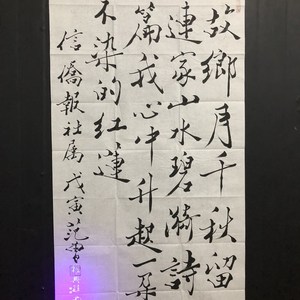 故鄉月千秋留
連家山水碧漪詩
篇我心中升起一朵
不染的紅蓮
信僑報社屬戊寅范